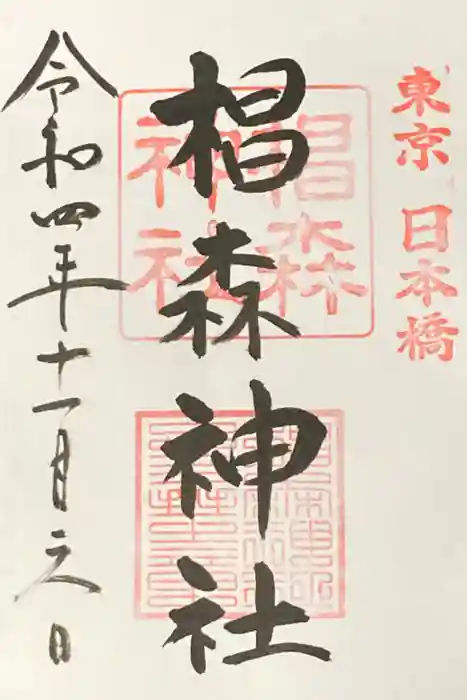 東京 日本橋
椙森神社
椙森神社
令和四年十一月六日